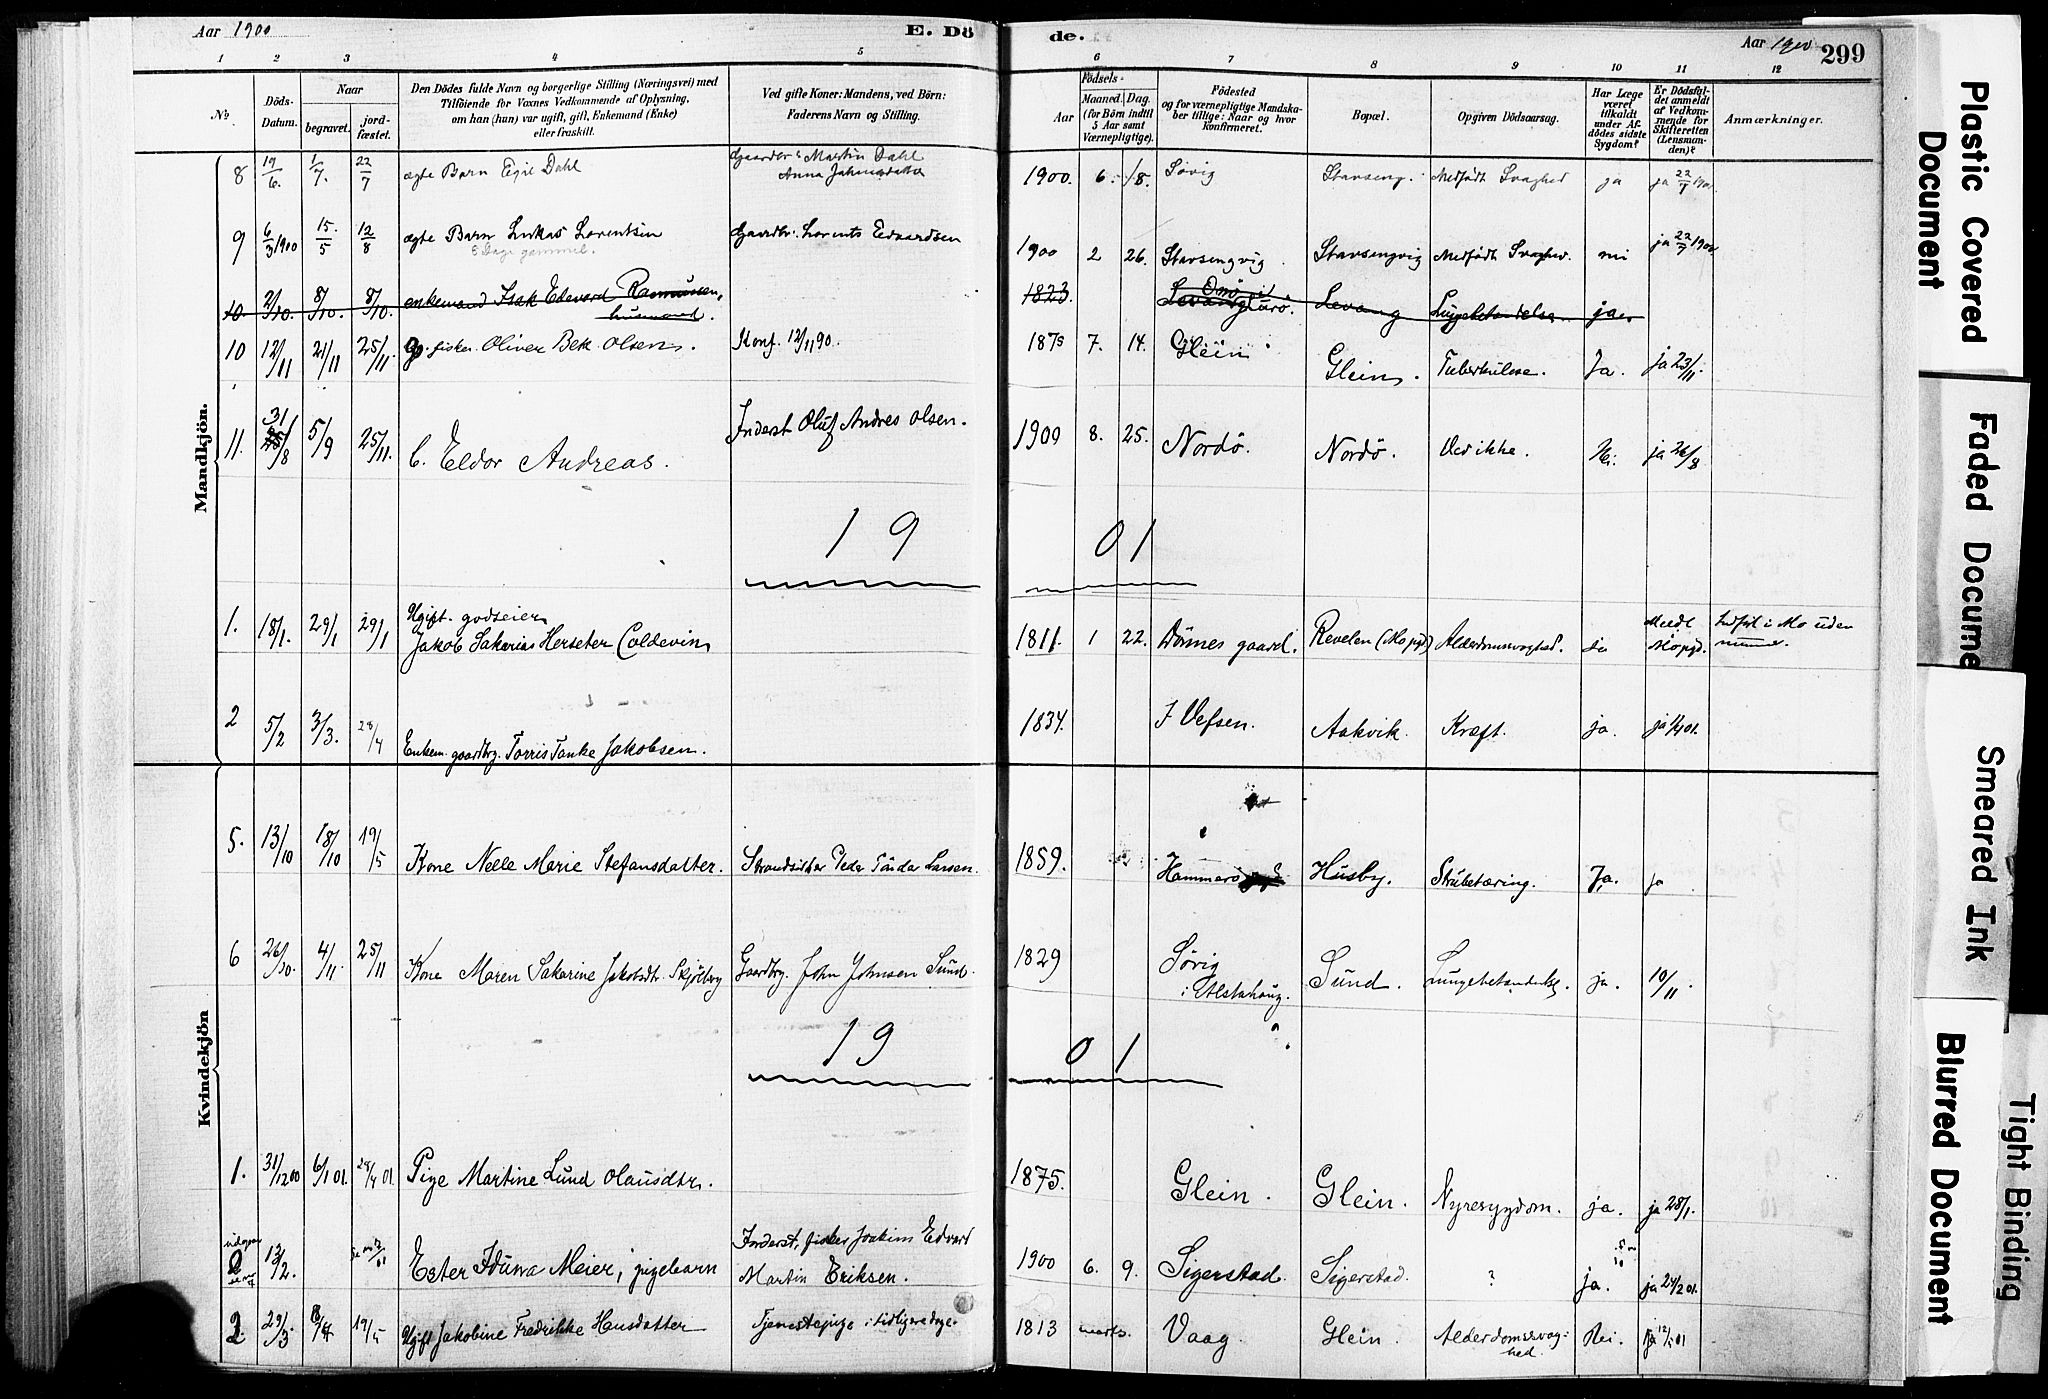 Aar 1900
E. Dö
de.
Aar 1900
299
1 2 3 4 5 6 7 8 9 10 11 12
No
Döds-Datum.
Naar
begravet.
jord-fæstet.
Den Dödes fulde Navn og borgerlige Stilling (Næringsvei) med
Tilföiende for Voxnes Vedkommende af Oplysning,
om han (hun) var ugift, gift, Enkemand (Enke)
eller fraskilt.
Ved gifte Koner: Mandens, ved Börn:
Faderens Navn og Stilling.
Födsels-
Aar
Maaned.
Dag.
(for Börn indtil
5 Aar samt
Værnepligtige).
Födested
og for værnepligtige Mandska-
ber tillige: Naar og hvor
konfirmeret.
Bopæl.
Opgiven Dödsaarsag.
Har Læge
været
tilkaldt
under Af-
dödes sidste
Sygdom?
Er Dödsfal-
det anmeldt
af Vedkom-
mende for
Skifteretten
(Lensman-
den)?
Anmærkninger.
Mandkjön.
8 19/6. 1/7. 22/7 ægte Barn Egil Dahl Gaardbr: Martin Dahl
Anna
1900. 6. 18. Søvig Stavseng. Medfødt Svaghed ja ja 22/7 1900
9 6/3 1900 15/5 12/8 ægte Barn Lukas Lorentsen Gaardbr: Lorents Edvardsen 1900 2 26. Stavsengvig. Stavsengvig Medfødt Svaghed. nei ja 22/7 1900
8 Dage gammel.
10. 2/10. 8/10. 8/10. enkemand Isak Edvard Rasmussen, 1823. Levang Lungebetændelse ja.
husmand.
10 12/11 21/11 25/11. fisker Oliver Bek Olsen. Konf. 12/11 90. 1875 7. 14. Glein Glein. Tuberkulose. Ja. ja 23/11.
11. 31/8 5/9 25/11. C. Eldor Andreas. Inderst Oluf Andres Olsen. 1900 8. 25. Nordö. Nordö. Ved ikke. Nei. ja 26/8
19 01
1. 18/1. 29/1 29/1 Ugift. godseier
Jakob Sakarias Herseter Coldevin 1811. 1 22. Dönnes gaard. Revelen (Mo pgd) Alderdomssvaghed. ja Meldt Mo pgd. Indfört i Mo uden
2 5/2 3/3. 28/4 Enkem. gaardbrg. Torris Tanke Jakobsen. 1834. I Vefsen. Aakvik. Kræft. ja. ja 1/4 01.
Kvindekjön
5. 13/10 18/10 19/5 Kone Nelle Marie Stefansdatter. Strandsidder Peder Tönder Larsen. 1859. Hammerö Husby. Strubetæring. Ja. ja
6 26/10. 4/11. 25/11 Kone Maren Sakarine Jakobsdtr. Skjölberg Gaardbrg. John Johnsen Sund. 1829 Sövig
i Alstahaug. Sund. Lungebetændelse. ja. 10/11.
19 01
1. 31/12 00 6/1 01. 28/4 01. Pige Martine Lund Olausdtr. 1875. Glein. Glein. Nyresygdom. ja. ja 28/1.
udgaar
2 13/2. Ester Iduna Meier, pigebarn Inderst, fisker Joakim Edvard
Martin Eriksen. 1900 6. 9. Sigerstad. Sigerstad. ? ja. ja 24/2 01.
2. 29/3. 8/4 19/5 Ugift Jakobine Fredrikke Hansdatter Tjenestepige i tidligere dage. 1813 marts. Vaag. Glein. Alderdomssvag-
hed. Nei. ja 12/5 01
Plastic Covered
Document
Faded Docume
Smeared Ink
Blurred Document
Tight Binding